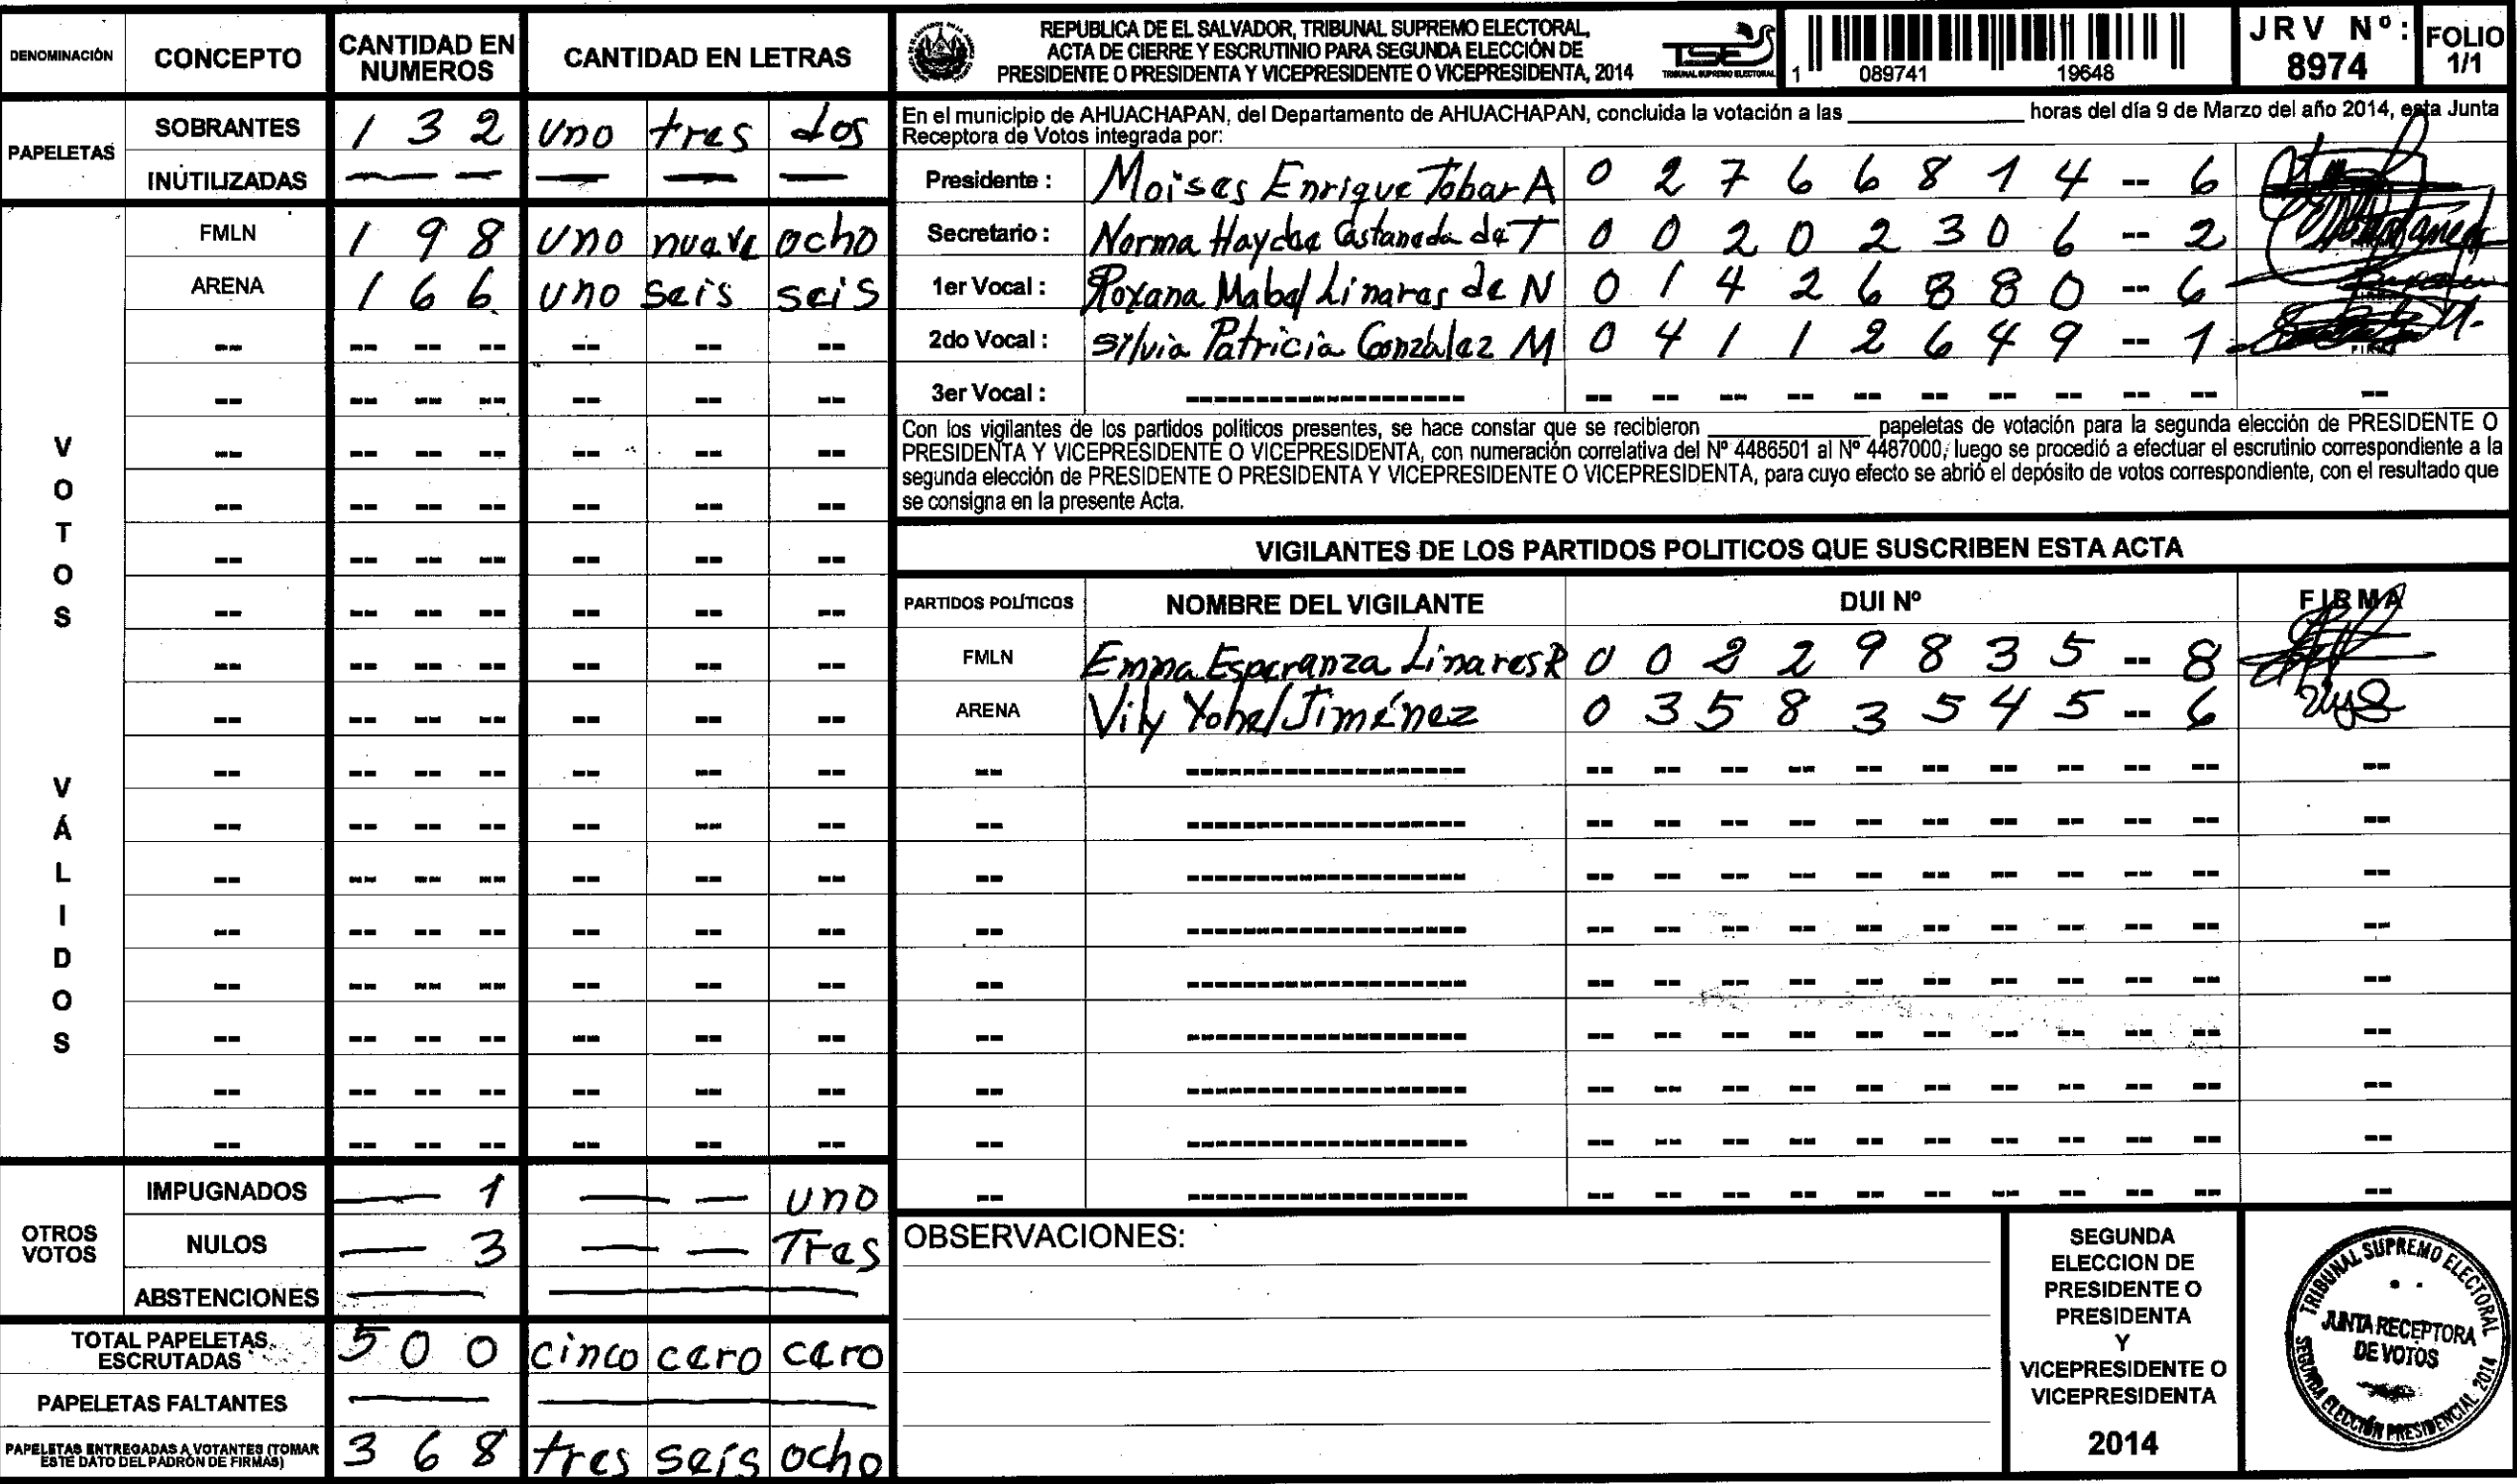 DENOMINACIÓN CONCEPTO CANTIDAD EN NUMEROS CANTIDAD EN LETRAS
PAPELETAS
SOBRANTES 1 3 2 uno tres dos
INUTILIZADAS — — — — — —
VOTOS VÁLIDOS
FMLN 1 9 8 uno nueve ocho
ARENA 1 6 6 uno seis seis
OTROS VOTOS
IMPUGNADOS — 1 — — uno
NULOS — 3 — — Tres
ABSTENCIONES — —
TOTAL PAPELETAS ESCRUTADAS 5 0 0 cinco cero cero
PAPELETAS FALTANTES — —
PAPELETAS ENTREGADAS A VOTANTES (TOMAR ESTE DATO DEL PADRÓN DE FIRMAS) 3 6 8 tres seis ocho
REPUBLICA DE EL SALVADOR, TRIBUNAL SUPREMO ELECTORAL,
ACTA DE CIERRE Y ESCRUTINIO PARA SEGUNDA ELECCIÓN DE
PRESIDENTE O PRESIDENTA Y VICEPRESIDENTE O VICEPRESIDENTA, 2014
TSE
TRIBUNAL SUPREMO ELECTORAL
1 089741 19648
JRV Nº: 8974
FOLIO 1/1
En el municipio de AHUACHAPAN, del Departamento de AHUACHAPAN, concluida la votación a las ____ horas del día 9 de Marzo del año 2014, esta Junta
Receptora de Votos integrada por:
Presidente : Moises Enrique Tobar A 0 2 7 6 6 8 1 4 -- 6
Secretario : Norma Haydee Castaneda de T 0 0 2 0 2 3 0 6 -- 2
1er Vocal : Roxana Mabel Linares de N 0 1 4 2 6 8 8 0 -- 6
2do Vocal : Silvia Patricia González M 0 4 1 1 2 6 4 9 -- 1
3er Vocal :
Con los vigilantes de los partidos políticos presentes, se hace constar que se recibieron ____ papeletas de votación para la segunda elección de PRESIDENTE O
PRESIDENTA Y VICEPRESIDENTE O VICEPRESIDENTA, con numeración correlativa del Nº 4486501 al Nº 4487000, luego se procedió a efectuar el escrutinio correspondiente a la
segunda elección de PRESIDENTE O PRESIDENTA Y VICEPRESIDENTE O VICEPRESIDENTA, para cuyo efecto se abrió el depósito de votos correspondiente, con el resultado que
se consigna en la presente Acta.
VIGILANTES DE LOS PARTIDOS POLITICOS QUE SUSCRIBEN ESTA ACTA
PARTIDOS POLÍTICOS NOMBRE DEL VIGILANTE DUI Nº FIRMA
FMLN Emma Esperanza Linares R 0 0 2 2 9 8 3 5 -- 8
ARENA Vily Yohel Jiménez 0 3 5 8 3 5 4 5 -- 6
OBSERVACIONES:
SEGUNDA
ELECCION DE
PRESIDENTE O
PRESIDENTA
Y
VICEPRESIDENTE O
VICEPRESIDENTA
2014
TRIBUNAL SUPREMO ELECTORAL
JUNTA RECEPTORA
DE VOTOS
SEGUNDA ELECCIÓN PRESIDENCIAL 2014